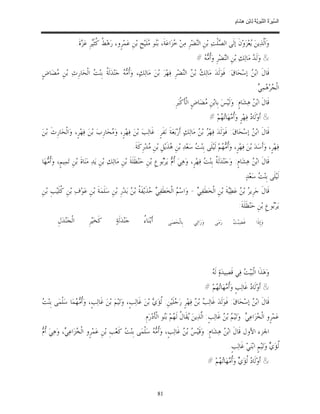 السّيرَة النّبَويّة لابْنِ هِشام
وَاَلّذِينَ يُعْزَوْنَ إلَى الصّلْتِ بْنِ النّضْرِ مِنْ خُزَاعَةَ، بَنُو مُلَيْحِ بْنِ عَمْرٍو، رَهْطُ كُثَيّرِ عَزّةَ
& وَلَدُ مَالِكِ بْنِ النّضْرِ وَأُمّهُ #
قَالَ ابْنُ إسْحَاقَ فَوَلَدَ مَالِكُ بْنُ النّضْرِ فِهْرَ بْنَ مَالِكٍ، وَأُمّهُ جَنْدَلَةُ بِنْتُ الْحَارِثِ بْنِ مُضَاضٍ
الْجُرْهُمِيّ
قَالَ ابْنُ هِشَامٍ وَلَيْسَ بِابْنِ مُضَاضٍ الْأَكْبَرِ
& أَوْلَادُ فِهْرٍ وَأُمّهَاتُهُمْ #
قَالَ ابْنُ إسْحَاقَ فَوَلَدَ فِهْرُ بْنُ مَالِكٍ أَرْبَعَةَ نَفَرٍ غَالِبَ بْنَ فِهْرٍ، وَمُحَارِبَ بْنَ فِهْرٍ، وَالْحَارِثَ بْنَ
فِهْرٍ، وَأَسَدَ بْنَ فِهْرٍ، وَأُمّهُمْ لَيْلَى بِنْتُ سَعْدِ بْنِ هُذَيْلِ بْنِ مُدْرِكَةَ
قَالَ ابْنُ هِشَامٍ وَجَنْدَلَةُ بِنْتُ فِهْرٍ، وَهِيَ أُمّ يَرْبُوعِ بْنِ حَنْظَلَةَ بْنِ مَالِكِ بْنِ زَيْدِ مَنَاةَ بْنِ تَمِيمٍ، وَأُمّهَا
لَيْلَى بِنْتُ سَعْدٍ
قَالَ جَرِيرُ بْنُ عَطِيّةَ بْنِ الْخَطَفَيّ - وَاسْمُ الْخَطَفَيّ حُذَيْفَةُ بْنُ بَدْرِ بْنِ سَلَمَةَ بْنِ عَوْفِ بْنِ كُلَيْبِ بْنِ
يَرْبُوعِ بْنِ حَنْظَلَةَ
وَإِذَا غَضِبْتُ رَمَى وَرَائِي بِالْحَصَى أَبْنَاءُ جَنْدَلَةٍ كَخَيْرِ الْجَنْدَلِ
وَهَذَا الْبَيْتُ فِي قَصِيدَةٍ لَهُ
& أَوْلَادُ غَالِبٍ وَأُمّهَاتُهُمْ #
قَالَ ابْنُ إسْحَاقَ فَوَلَدَ غَالِبُ بْنُ فِهْرٍ رَجُلَيْنِ لُؤَيّ بْنَ غَالِبٍ، وَتَيْمَ بْنَ غَالِبٍ، وَأُمّهُمَا سَلْمَى بِنْتُ
عَمْرٍو الْخُزَاعِيّ وَتَيْمُ بْنُ غَالِبٍ الّذِينَ يُقَالُ لَهُمْ بَنُو الْأَدْرَمِ
الجزء الأول قَالَ ابْنُ هِشَامٍ وَقَيْسُ بْنُ غَالِبٍ، وَأُمّهُ سَلْمَى بِنْتُ كَعْبِ بْنِ عَمْرٍو الْخُزَاعِيّ، وَهِيَ أُمّ
لُؤَيّ وَتَيْمٍ ابْنَيْ غَالِبٍ
& أَوْلَادُ لُؤَيّ وَأُمّهَاتُهُمْ #
81